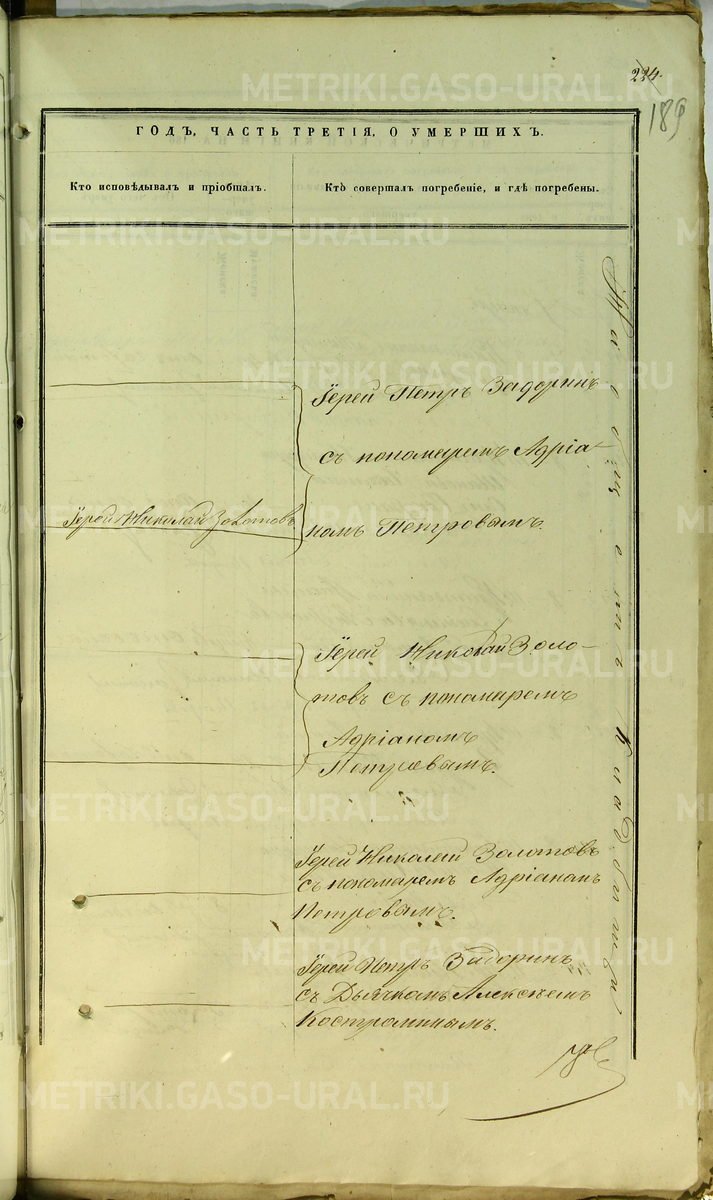 224.
189
ГОДЪ, ЧАСТЬ ТРЕТІЯ, О УМЕРШИХЪ.
Кто исповѣдывалъ и пріобщалъ.
Кто совершалъ погребеніе, и гдѣ погребены.
Іерей Петръ Задоринъ
съ пономаремъ Адріа-
номъ Петровымъ.
Іерей Николай Золотовъ
Іерей Николай Золо-
товъ съ пономаремъ
Адріаномъ
Петровымъ.
Іерей Николай Золотовъ
съ пономаремъ Адріаномъ
Петровымъ.
Іерей Петръ Задоринъ
съ Дьячкомъ Алексѣемъ
Костроминымъ.
METRIKI.GASO-URAL.RU